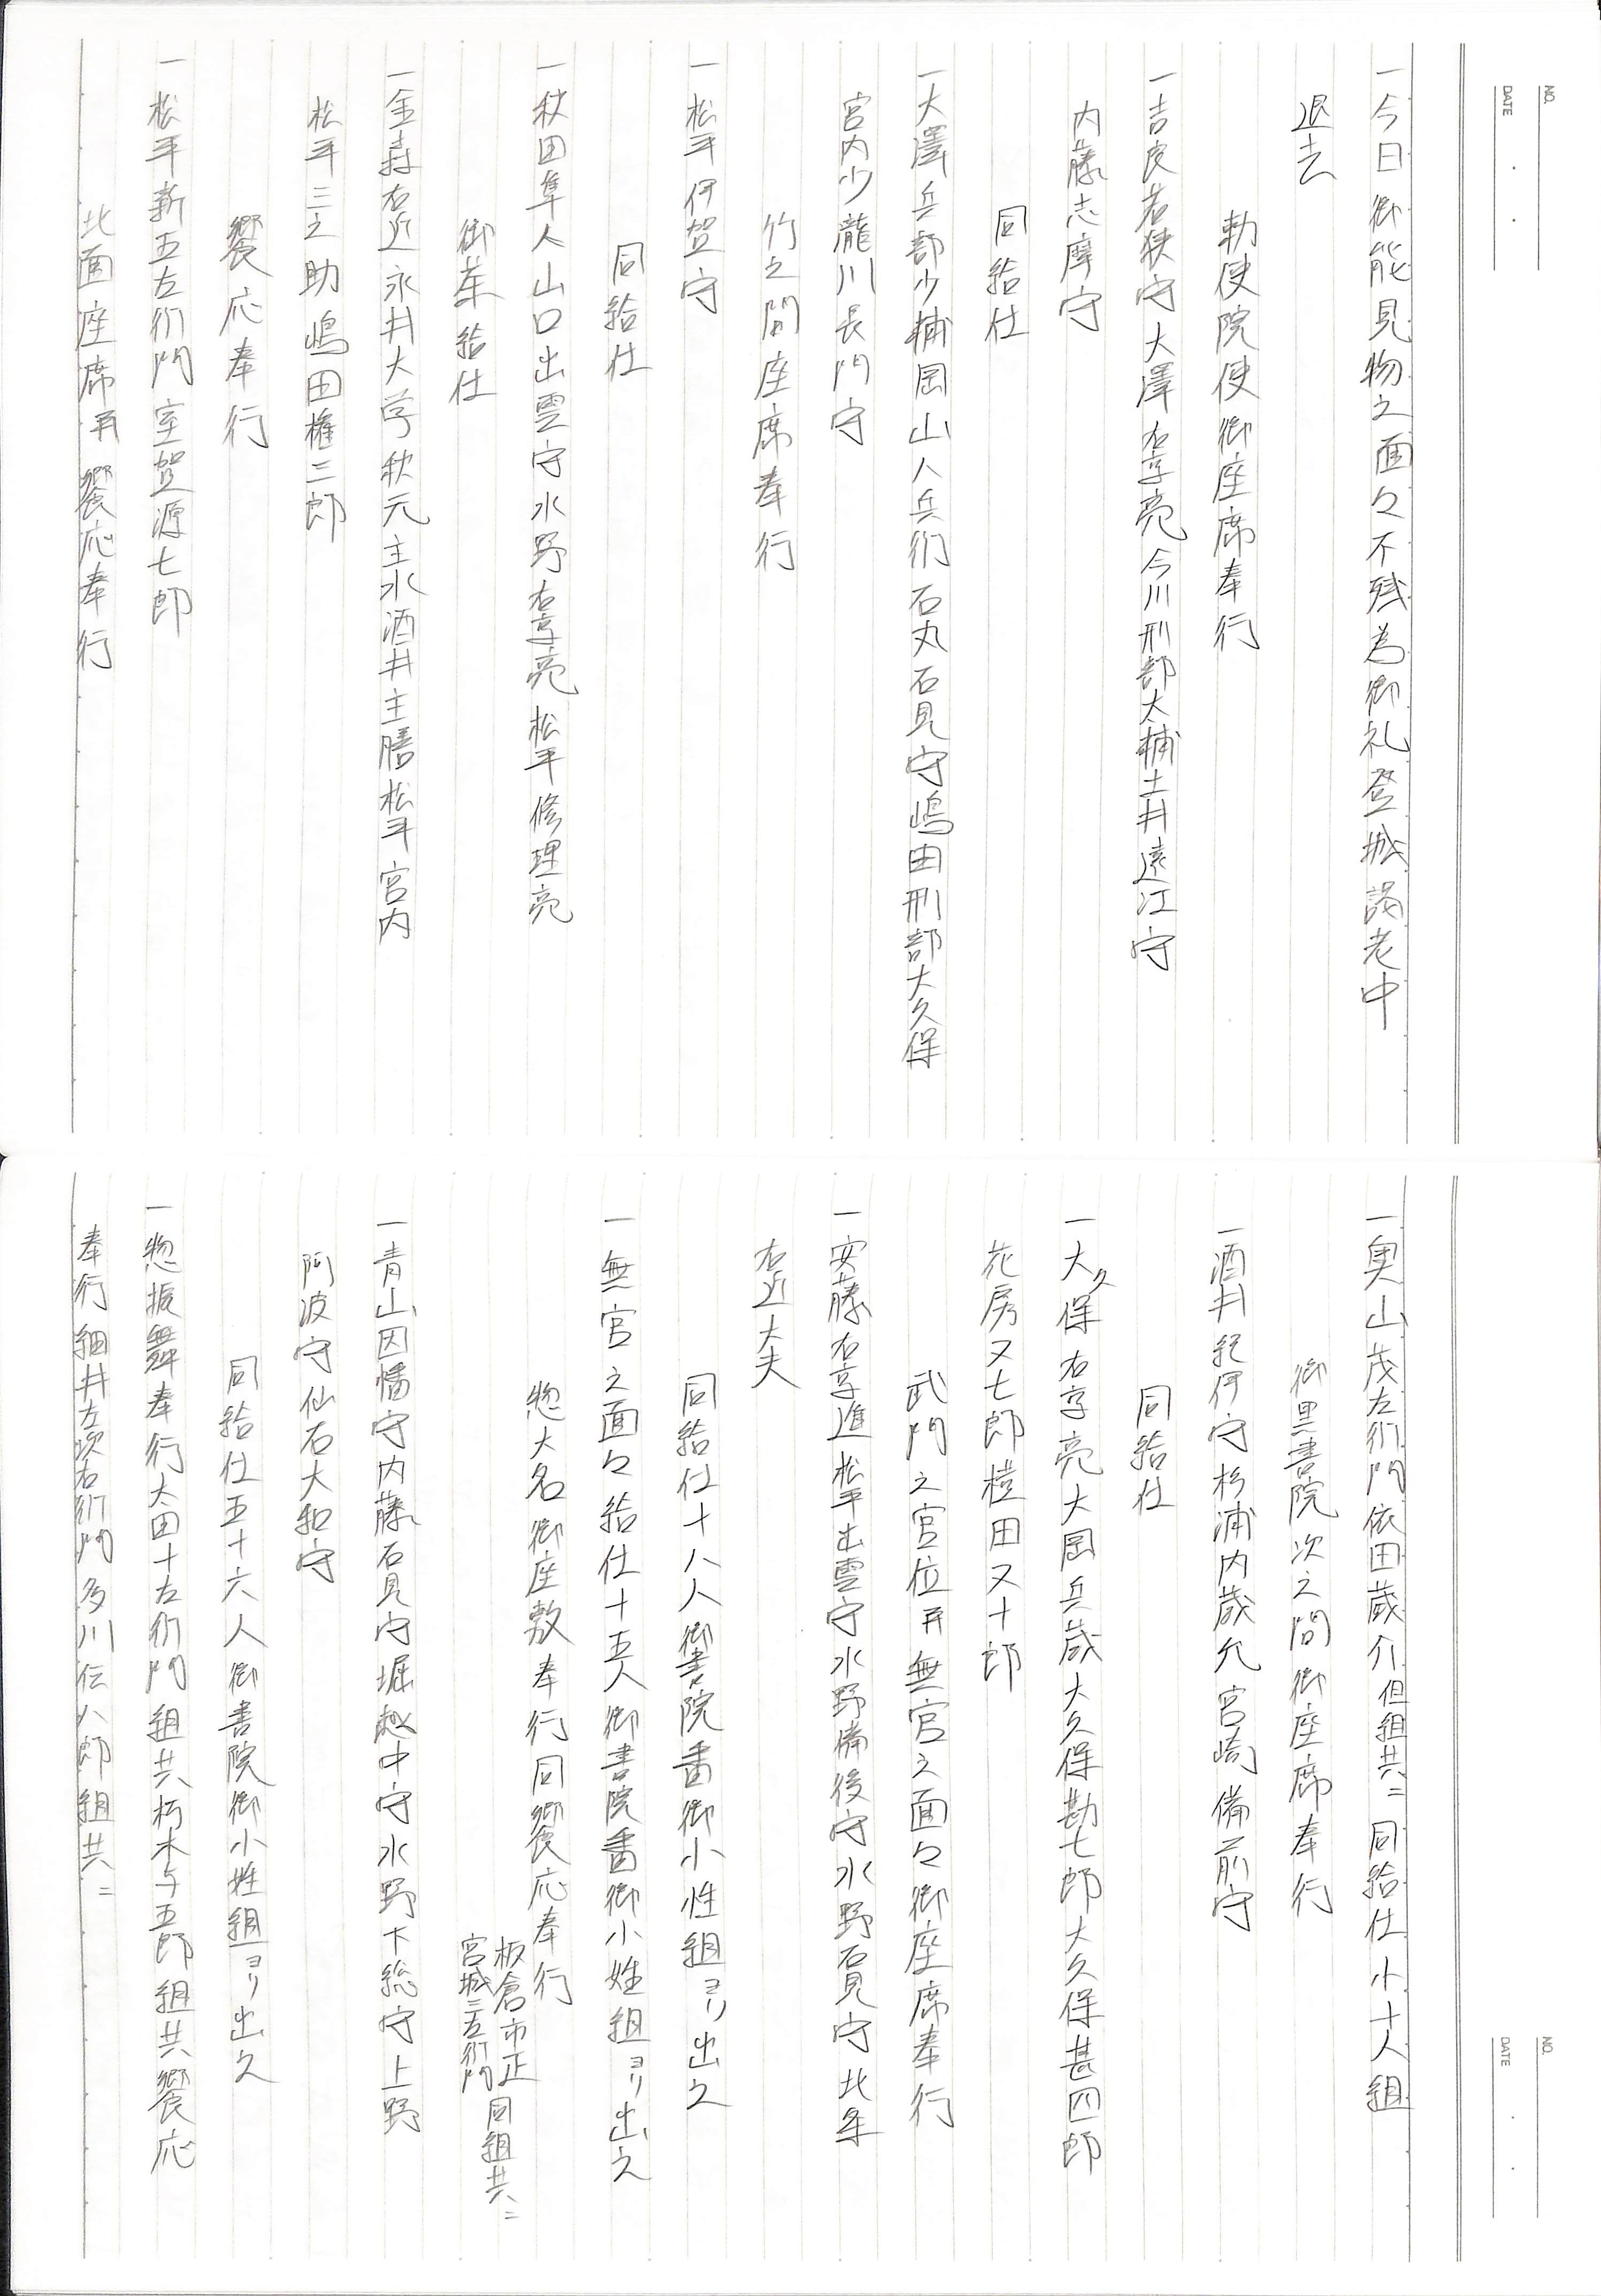 NO.
DATE
一今日御能見物之面々不残為御礼登城謁老中
退去
勅使院使御座席奉行
一吉良若狭守大澤右京亮今川刑部太輔土井遠江守
内藤志摩守
同給仕
一大澤兵部少輔岡山人兵衛石丸石見守嶋田刑部大久保
宮内少瀧川長門守
竹之間座席奉行
一松平伊賀守
同給仕
一秋田隼人山口出雲守水野右京亮松平修理亮
御茶給仕
一金森右近永井大学秋元主水酒井主膳松平宮内
松平三之助嶋田権三郎
饗応奉行
一松平新五左衛門室賀源七郎
北面座席并饗応奉行
NO.
DATE
一奥山茂左衛門依田蔵介但組共ニ同給仕小十人組
御黒書院次之間御座席奉行
一酒井紀伊守杉浦内蔵允宮崎備前守
同給仕
一大久保右京亮大岡兵蔵大久保勘七郎大久保甚四郎
花房又七郎椬田又十郎
武門之官位并無官之面々御座席奉行
一安藤右京進松平出雲守水野備後守水野石見守北条
右近大夫
同給仕十八人御書院番御小性組ヨリ出之
一無官之面々給仕十五人御書院番御小姓組ヨリ出之
惣大名御座敷奉行同饗応奉行
板倉市正
宮城三左衛門
同組共ニ
一青山因幡守内藤石見守堀越中守水野下総守上野
阿波守仙石大和守
同給仕五十六人御書院御小姓組ヨリ出之
一惣振舞奉行太田十左衛門組共朽木与五郎組共饗応
奉行細井左次右衛門多川伝八郎組共ニ